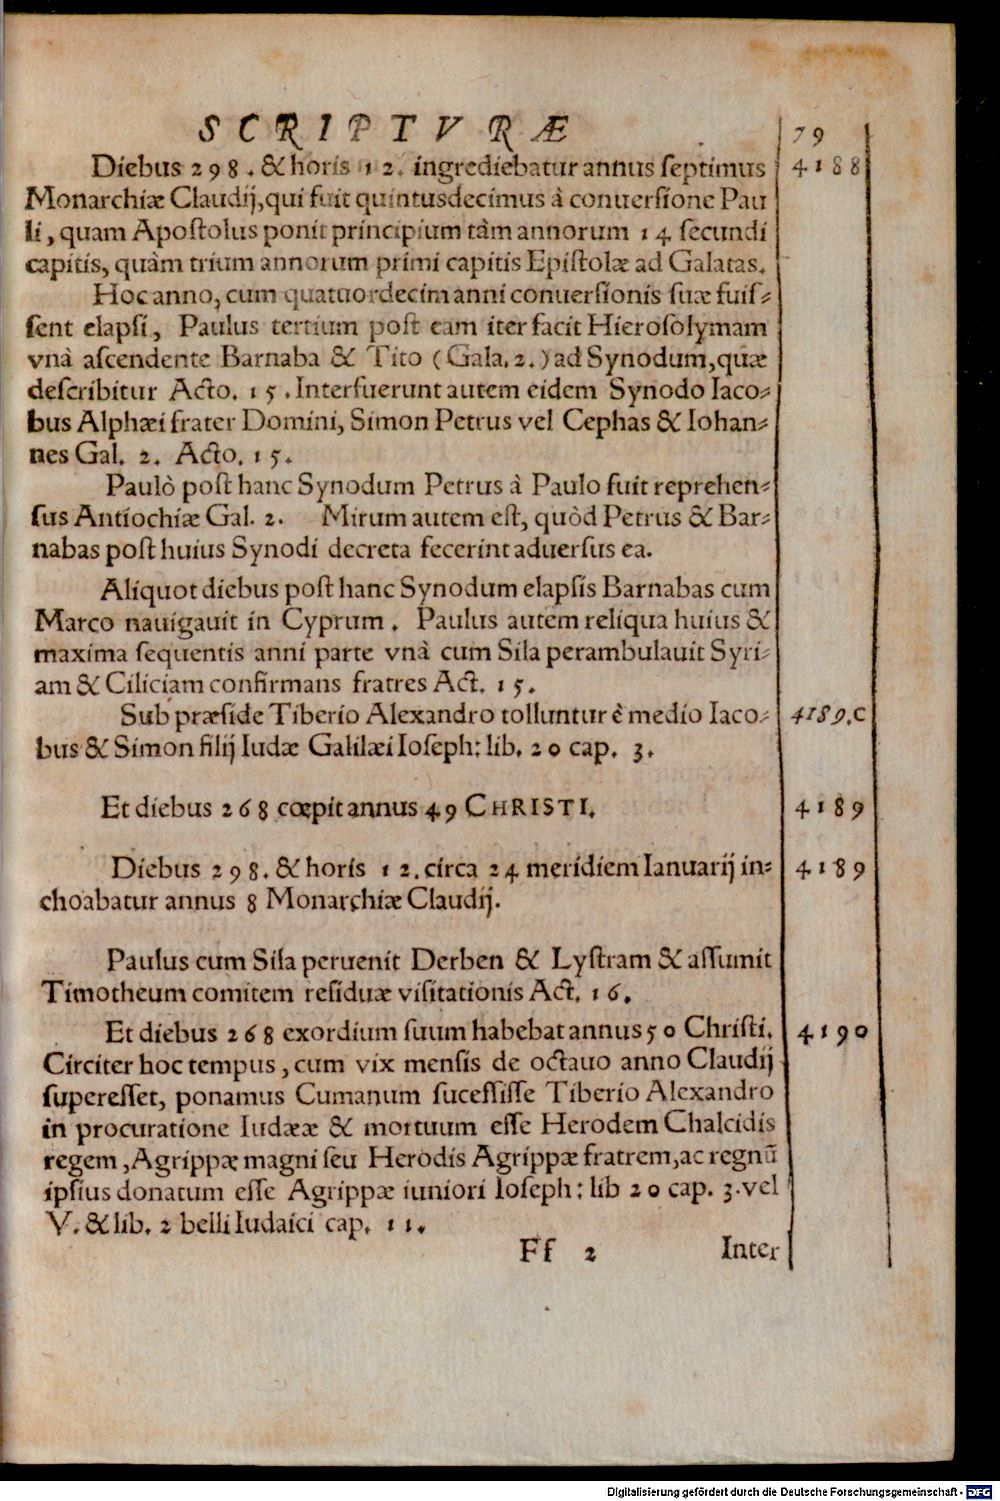 SCRIPTVRÆ 79
Diebus 298. & horis 12. ingrediebatur annus ſeptimus 4188
Monarchiæ Claudij, qui fuit quintusdecimus à conuerſione Pau
li, quam Apoſtolus ponit principium tàm annorum 14 ſecundi
capitis, quàm trium annorum primi capitis Epiſtolæ ad Galatas.
Hoc anno, cum quatuordecim anni conuerſionis ſuæ fuiſ⸗
ſent elapſi, Paulus tertium poſt eam iter facit Hieroſolymam
vnà aſcendente Barnaba & Tito (Gala. 2.) ad Synodum, quæ
deſcribitur Acto. 15. Interfuerunt autem eidem Synodo Iaco⸗
bus Alphæi frater Domini, Simon Petrus vel Cephas & Iohan⸗
nes Gal. 2. Acto. 15.
Paulò poſt hanc Synodum Petrus à Paulo fuit reprehen⸗
ſus Antiochiæ Gal. 2. Mirum autem eſt, quòd Petrus & Bar⸗
nabas poſt huius Synodi decreta fecerint aduerſus ea.
Aliquot diebus poſt hanc Synodum elapſis Barnabas cum
Marco nauigauit in Cyprum. Paulus autem reliqua huius &
maxima ſequentis anni parte vnà cum Sila perambulauit Syri⸗
am & Ciliciam confirmans fratres Act. 15.
Sub præſide Tiberio Alexandro tolluntur è medio Iaco⸗ 4189.C
bus & Simon filij Iudæ Galilæi Ioſeph: lib. 20 cap. 3.
Et diebus 268 cœpit annus 49 CHRISTI. 4189
Diebus 298. & horis 12. circa 24 meridiem Ianuarij in⸗ 4189
choabatur annus 8 Monarchiæ Claudij.
Paulus cum Sila peruenit Derben & Lyſtram & aſſumit
Timotheum comitem reſiduæ viſitationis Act. 16.
Et diebus 268 exordium ſuum habebat annus 50 Chriſti. 4190
Circiter hoc tempus, cum vix menſis de octauo anno Claudij
ſupereſſet, ponamus Cumanum ſuceſſiſſe Tiberio Alexandro
in procuratione Iudææ & mortuum eſſe Herodem Chalcidis
regem, Agrippæ magni ſeu Herodis Agrippæ fratrem, ac regnũ
ipſius donatum eſſe Agrippæ iuniori Ioſeph: lib 20 cap. 3. vel
V. & lib. 2 belli Iudaici cap. 11.
Ff 2 Inter
Digitalisierung gefördert durch die Deutsche Forschungsgemeinschaft - DFG